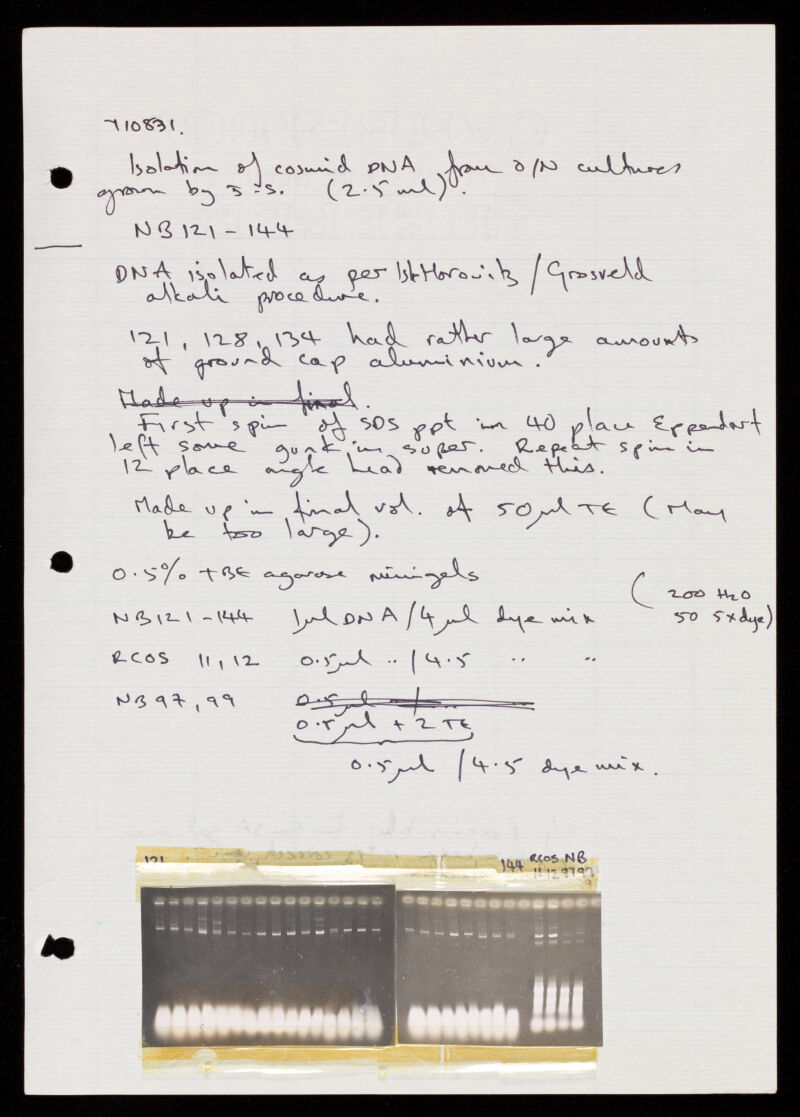 110831.
Isolation of cosmid DNA from O/N cultures
grown by J.S. (2.5 ml).
NB121-144
DNA isolated as per Ish Horowitz / Grosveld
alkali procedure.
121, 128, 134 had rather large amounts
of ground cap aluminium.
Made up in final.
First spin of SDS ppt in 40 place Eppendorf
left some gunk in super. Repeat spin in
12 place angle head removed this.
Made up in final vol. of 50µl TE (May
be too large).
0.5% TBE agarose minigels
(200 H2O
50 5xdye)
NB121-144 1µl DNA/4µl dye mix
RCOS 11,12 0.5µl " / 4.5 " "
NB97,99 0.5µl /
0.5µl + 2 TE
0.5µl /4.5 dye mix.
121 144 RCOS NB
11 12 97 99